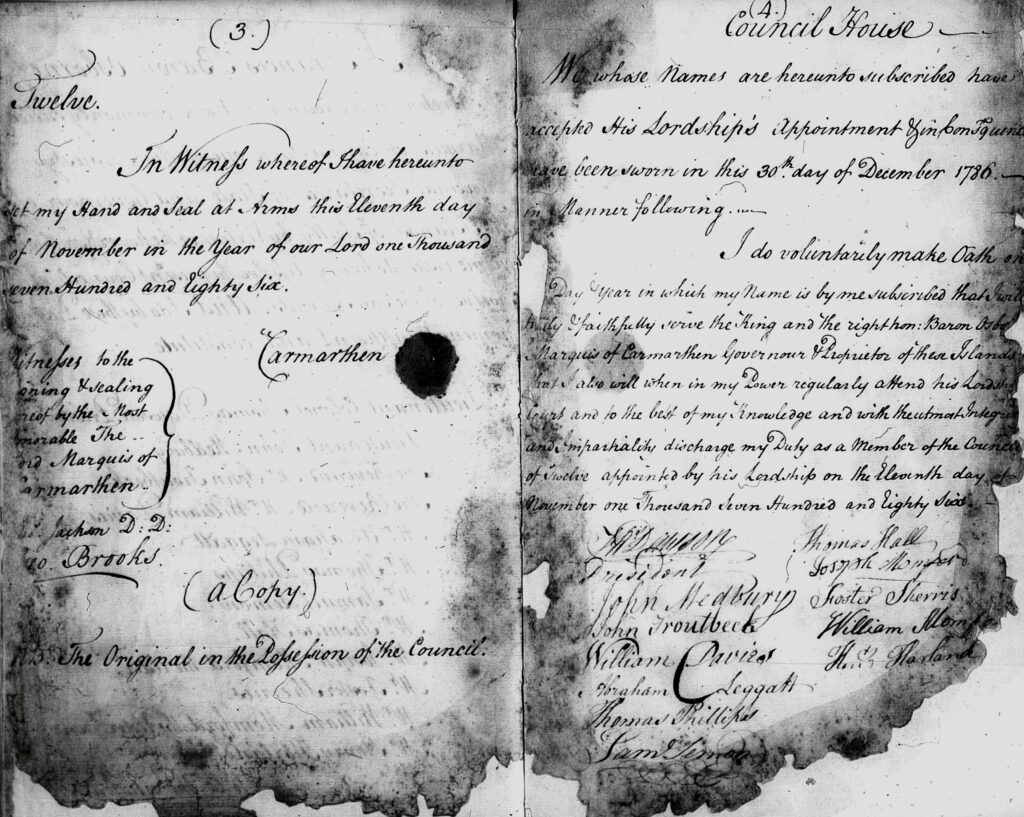 (3.)
Twelve.
In Witness whereof I have hereunto
set my Hand and Seal at Arms this Eleventh day
of November in the Year of our Lord one Thousand
seven Hundred and Eighty Six.
Carmarthen
Witnesses to the
signing & sealing
hereof by the Most
Honorable The
Lord Marquis of
Carmarthen.
Jackson D: D:
Geo. Brooks.
(a Copy.)
NB: The Original in the Possession of the Council.
(4.)
Council House
We whose Names are hereunto subscribed have
accepted His Lordship's Appointment & in Consequence
have been sworn in this 30th. day of December 1786.
in Manner following.
I do voluntarily make Oath on
Day & Year in which my Name is by me subscribed that I will
truly & faithfully serve the King and the right hon: Baron Osbo
Marquis of Carmarthen Governour & Proprietor of these Islands
that I also will when in my Power regularly attend his Lordship
Court and to the best of my Knowledge and with the utmost Integrity
and Impartiality discharge my Duty as a Member of the Council
of Twelve appointed by his Lordship on the Eleventh day of
November one Thousand Seven Hundred and Eighty Six.
Dawson
President
John Medbury
John Troutbeck
William Davies
Abraham Leggatt
Thomas Phillips
Saml. Lemon
Thomas Hall
Joseph
Foster Sherris
William
Harland